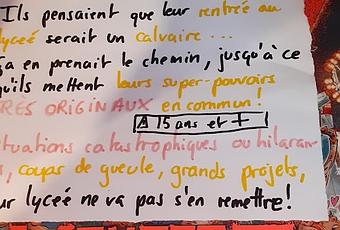 Ils pensaient que leur rentrée au
lyceé serait un calvaire ...
Ça en prenait le chemin, jusqu'à ce
qu'ils mettent leurs super-pouvoirs
TRES ORIGINAUX en commun!
A 15 ans et +
situations catastrophiques ou hilaran
, coups de gueule, grands projets,
ur lyceé ne va pas s'en remettre!